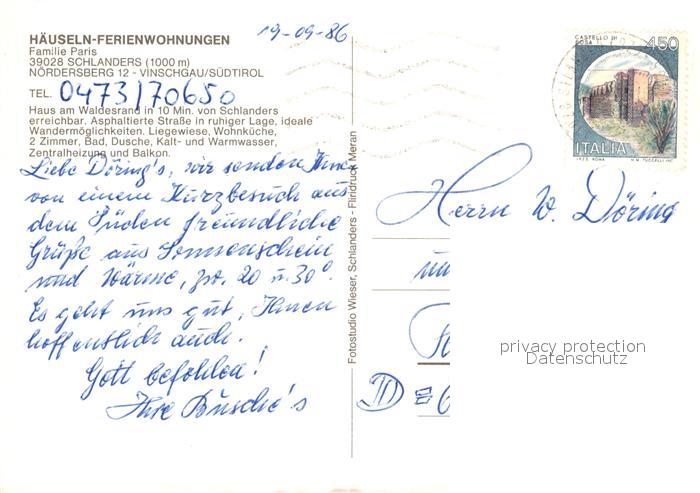 19-09-86
HÄUSELN-FERIENWOHNUNGEN
Familie Paris
39028 SCHLANDERS (1000 m)
NÖRDERSBERG 12 - VINSCHGAU/SÜDTIROL
TEL. 0473/70650
Haus am Waldesrand in 10 Min. von Schlanders
erreichbar. Asphaltierte Straße in ruhiger Lage, ideale
Wandermöglichkeiten. Liegewiese, Wohnküche,
2 Zimmer, Bad, Dusche, Kalt- und Warmwasser,
Zentralheizung und Balkon.
Liebe Döring's, wir senden Ihnen
von einem Kurzbesuch aus
dem Süden freundliche
Grüße aus Sonnenschein
und Wärme, zw. 20 u. 30°.
Es geht uns gut, Ihnen
hoffentlich auch.
Gott befohlen!
Ihre Busche's
Fotostudio Wieser, Schlanders - Flridruck Meran
CASTELLO DI
ROSA
450
ITALIA
Herrn W. Döring
un
D
privacy protection
Datenschutz